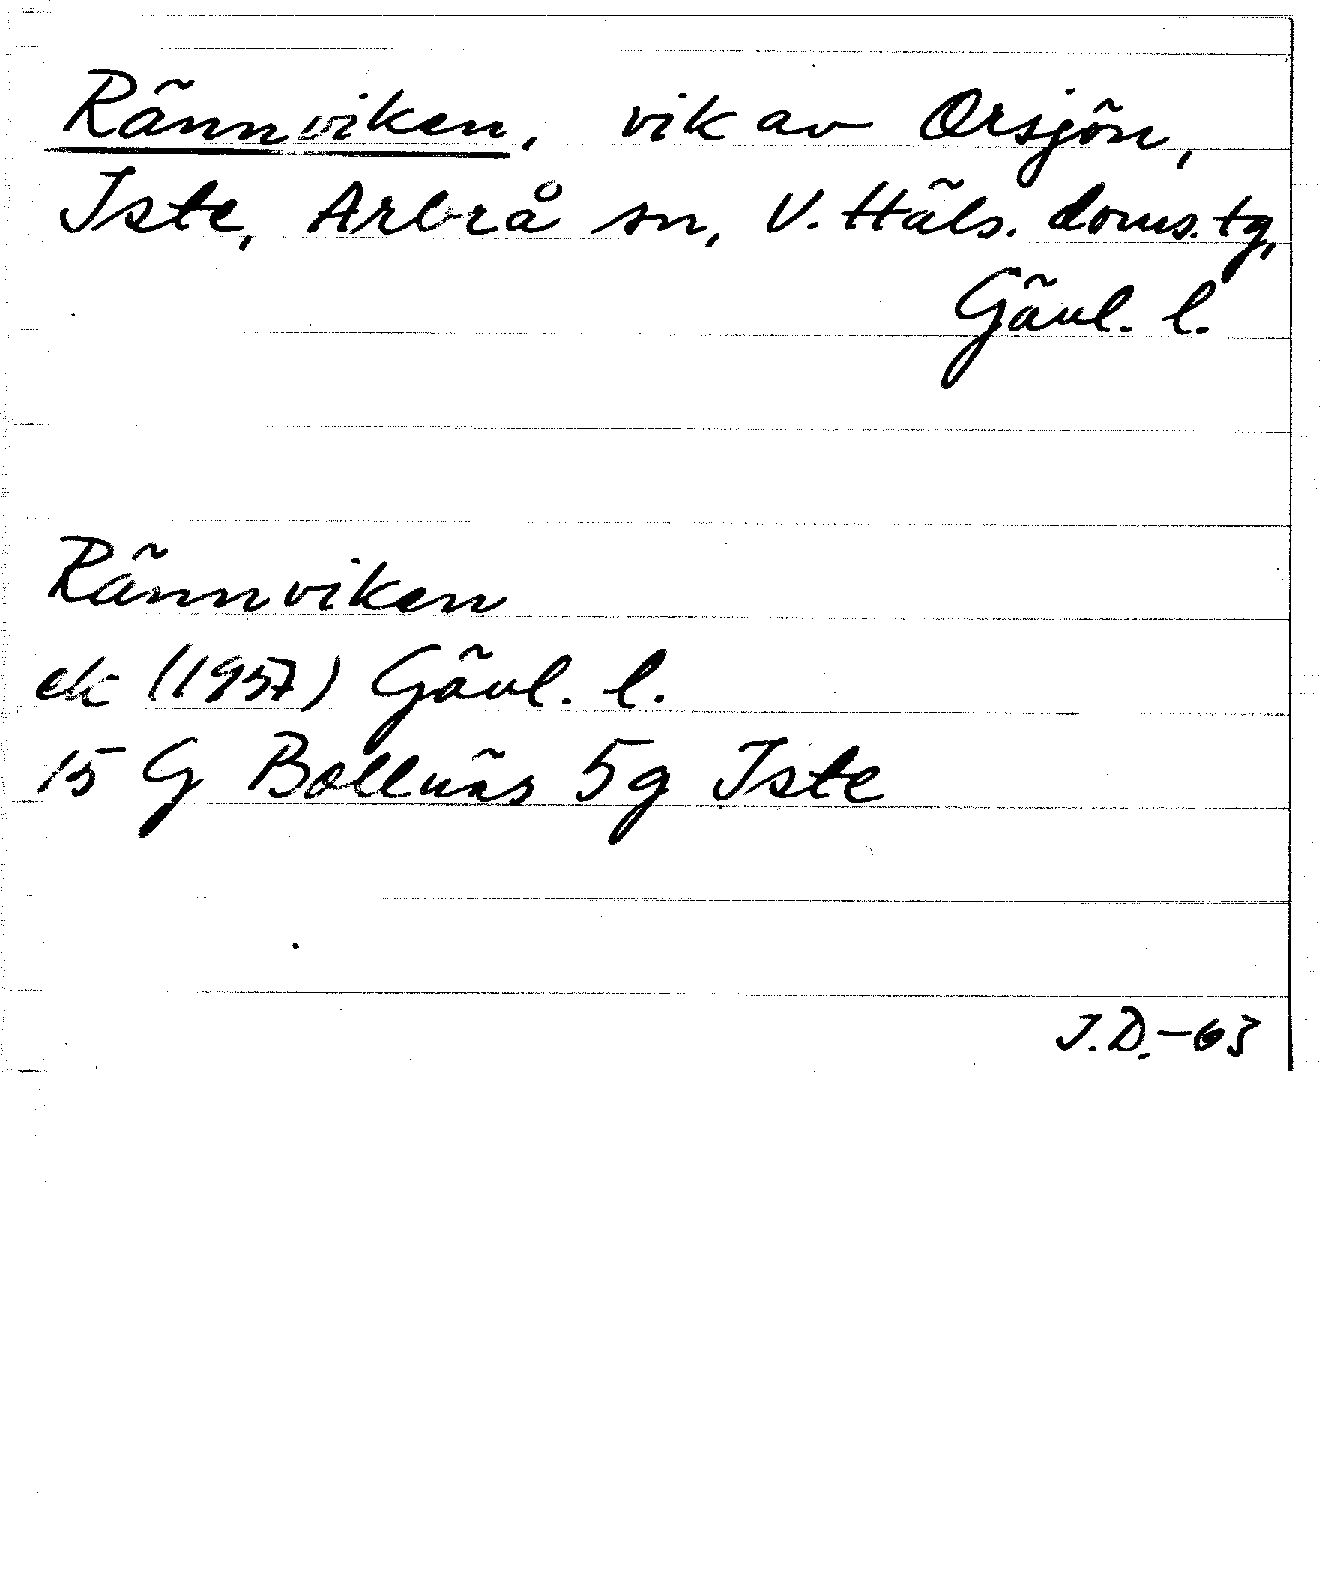 Rännviken, vik av Orsjön,
Iste, Arbrå sn, V. Häls. doms. tg,
Gävl. l.
Rännviken
ek (1957) Gävl. l.
15 G Bollnäs 5g Iste
J.D.-63